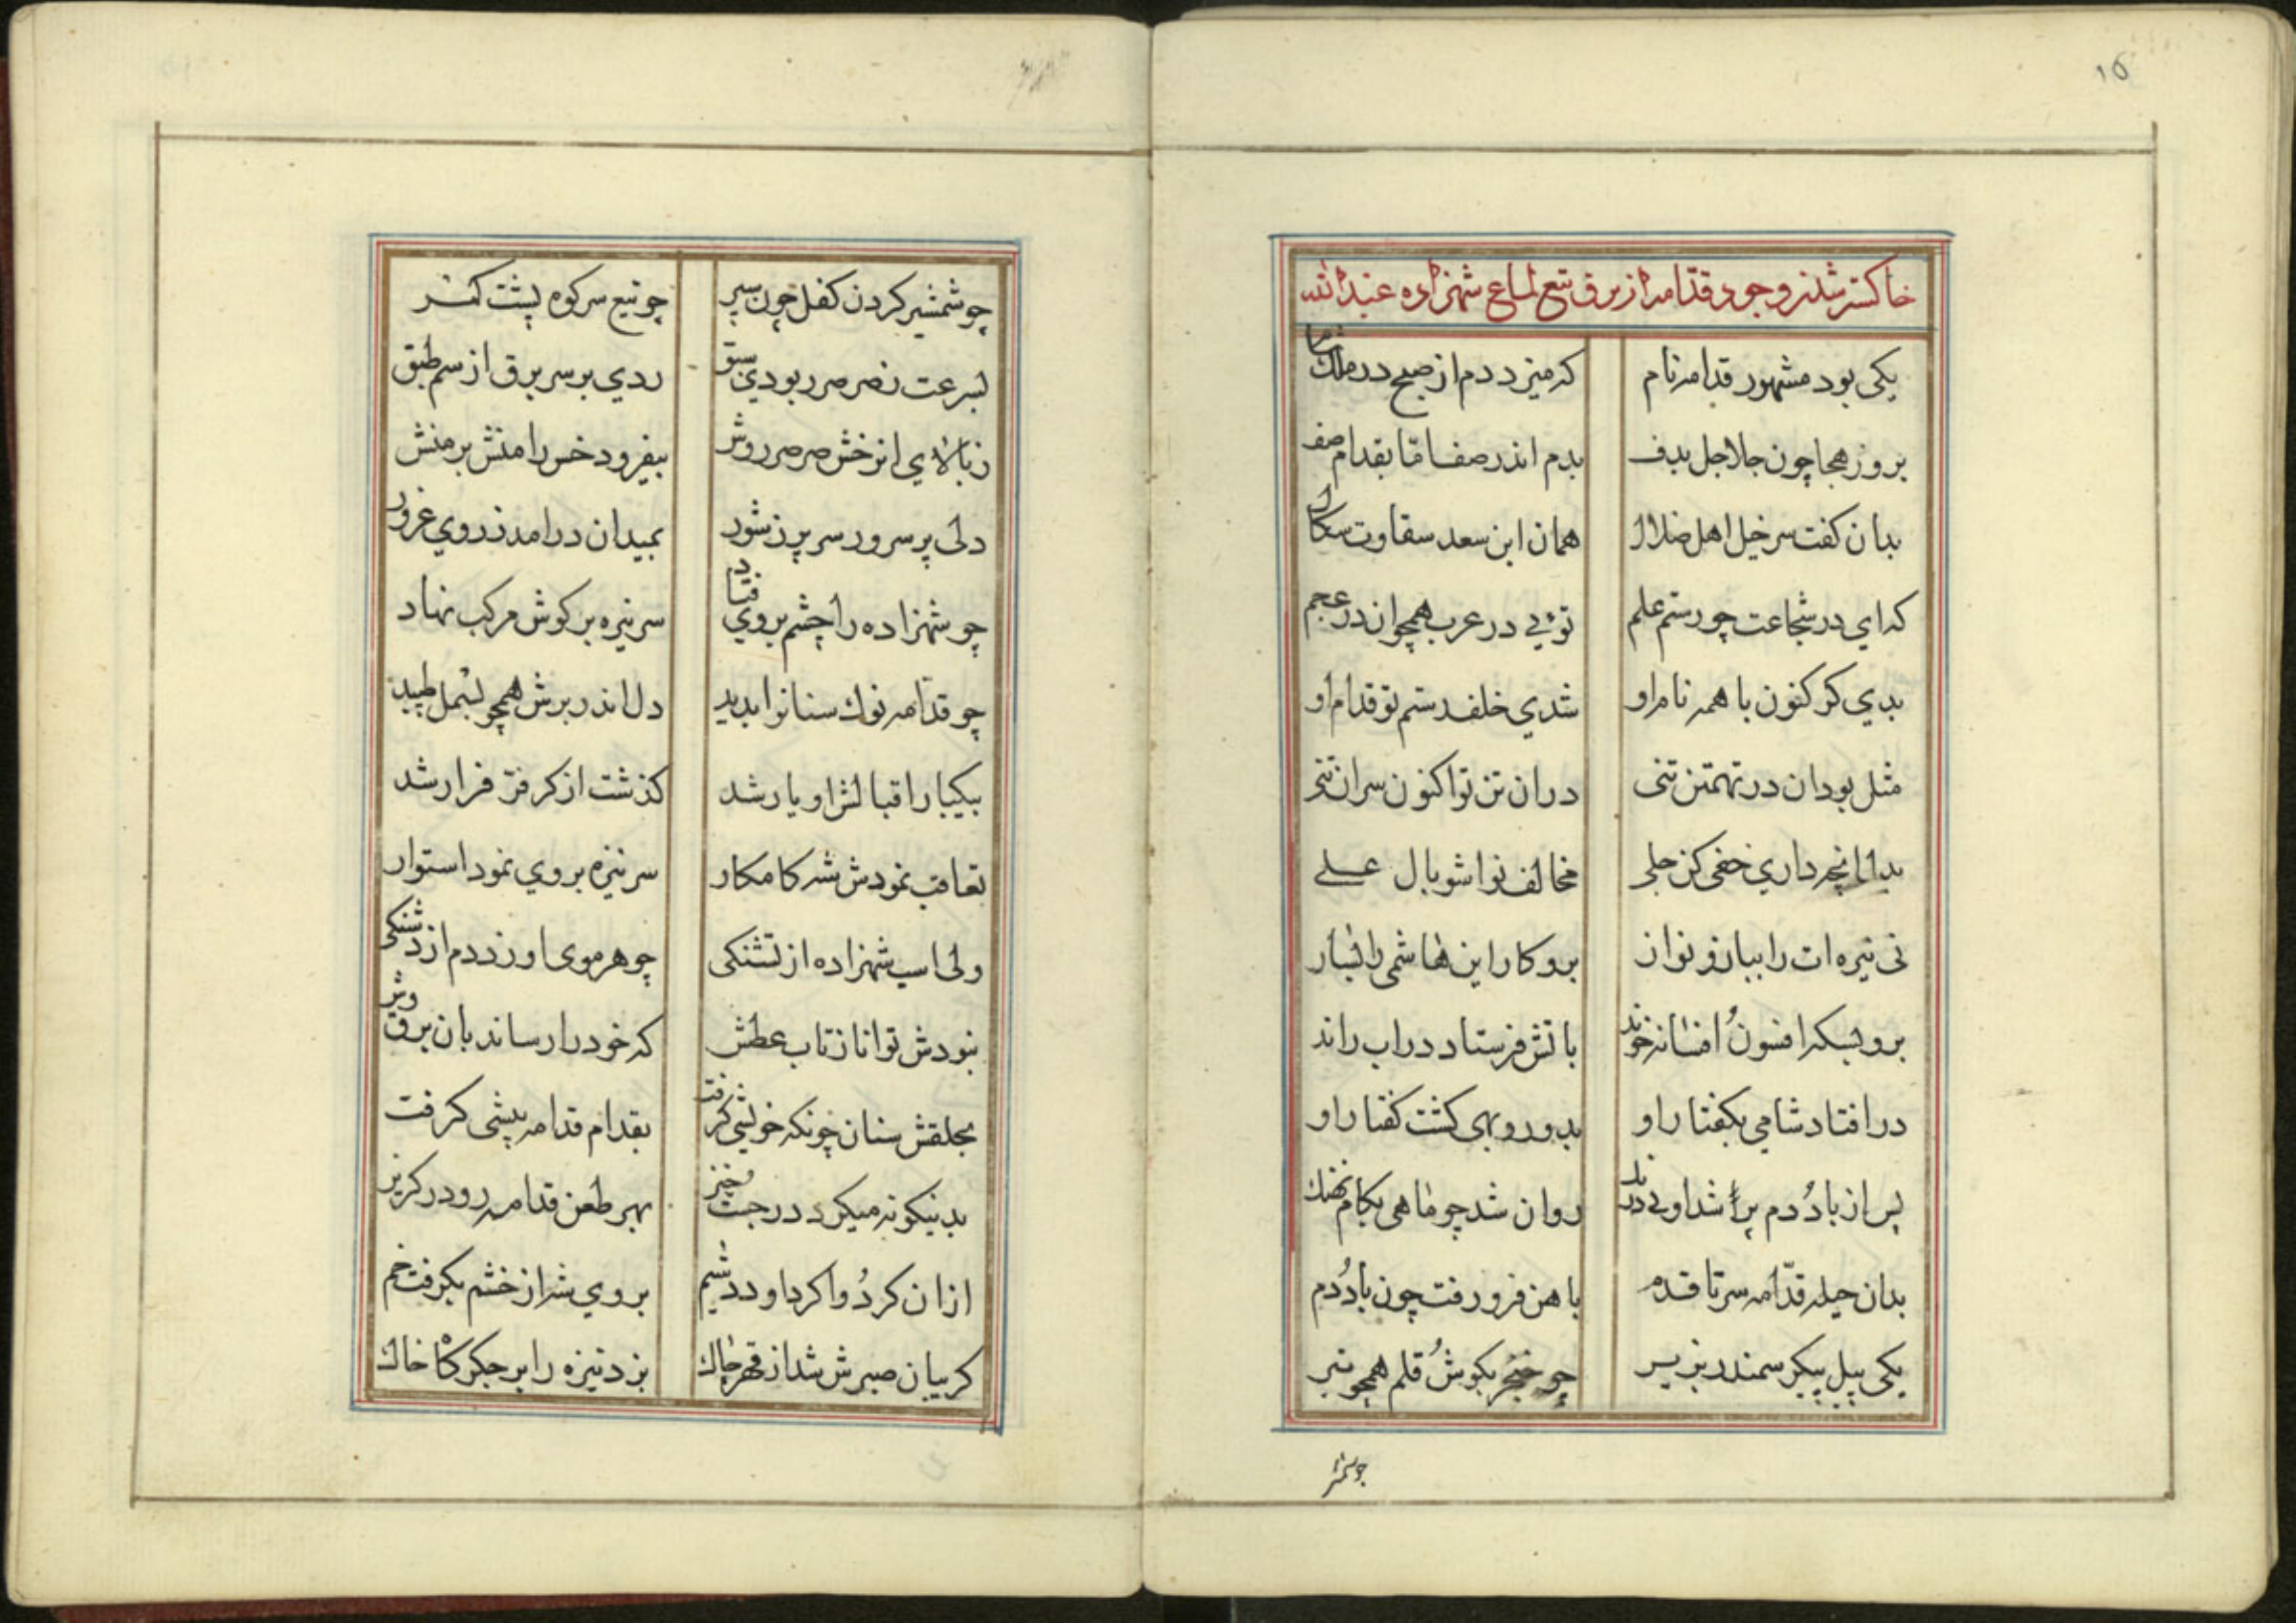 ١٥
خاکستر شدن وجود قدّامه از برق تیغ لماع شهزاده عبدالله
یکی بود مشهور قدامه نام که میزد دم از صبح در ملک شام
بروز هجا چون جلاجل بدف بدم اندر صف اما بقدام صف
بدان کفت سرخیل اهل ضلال همان ابن سعد سقاوت سکال
که ای در شجاعت چو رستم علم توئی در عرب همچو ان در عجم
بدی کر کنون با همه نام او شدی خلف رستم تو قدام او
مثل بود ان در تهمتن تنی در ان تن تو اکنون سران تنی
بدل انچه داری خفی کن جلی مخالف نوا شو بال علی
نی نیزه ات را بساز و نواز برو کار این هاشمی را بساز
برو بسکه افسون افسانه خواند باتش فرستاد در اب راند
در افتاد شامی بکفتار او بدو روبهی کشت کفتار او
پس از باد دم پر شد او بی درنک روان شد چو ماهی بکام نهنک
بدان حیله قدّامه سر تا قدم باهن فرو رفت چون باد دم
یکی پیل پیکر سمندر بزیر چو خنجر بکوش قلم همچو تیر
چو شمش
چو شمشیر کردن کفل چون سپر چو تیغ سر کوه پشت کمر
بسرعت ز صرصر ربودی سبق زدی بر سر برق از سم طبق
ز بالای ان رخش صرصر روش بیفزود خس را منش بر منش
دلی پر سرور سر پر ز شور بمیدان درامد ز روی غرور
چو شهزاده را چشم بروی فتاد سر نیزه بر کوش مرکب نهاد
چو قدّامه نوک سنانرا بدید دل اندر برش همچو بسمل طپید
بیکبار اقبالش او یار شد کذشت از کر فرّ فرار شد
تعاقب نمودش شه کامکار سر نیزه بروی نمود استوار
ولی اسب شهزاده از تشنکی چو هر موی او زد دم از دشنکی
نبودش توانا ز تاب عطش که خود را رساند بان برق وش
بحلقش سنان چونکه خویشی کرفت بقدام قدامه پیشی کرفت
بدینکونه میکرد در جست خیز بهر طعن قدامه رو در کریز
ازان کرد وا کرد او در ستیم بروی شه از خشم بکرفت خم
کریبان صبرش شد از قهر چاک بزد نیزه را بر جکر کاه خاک